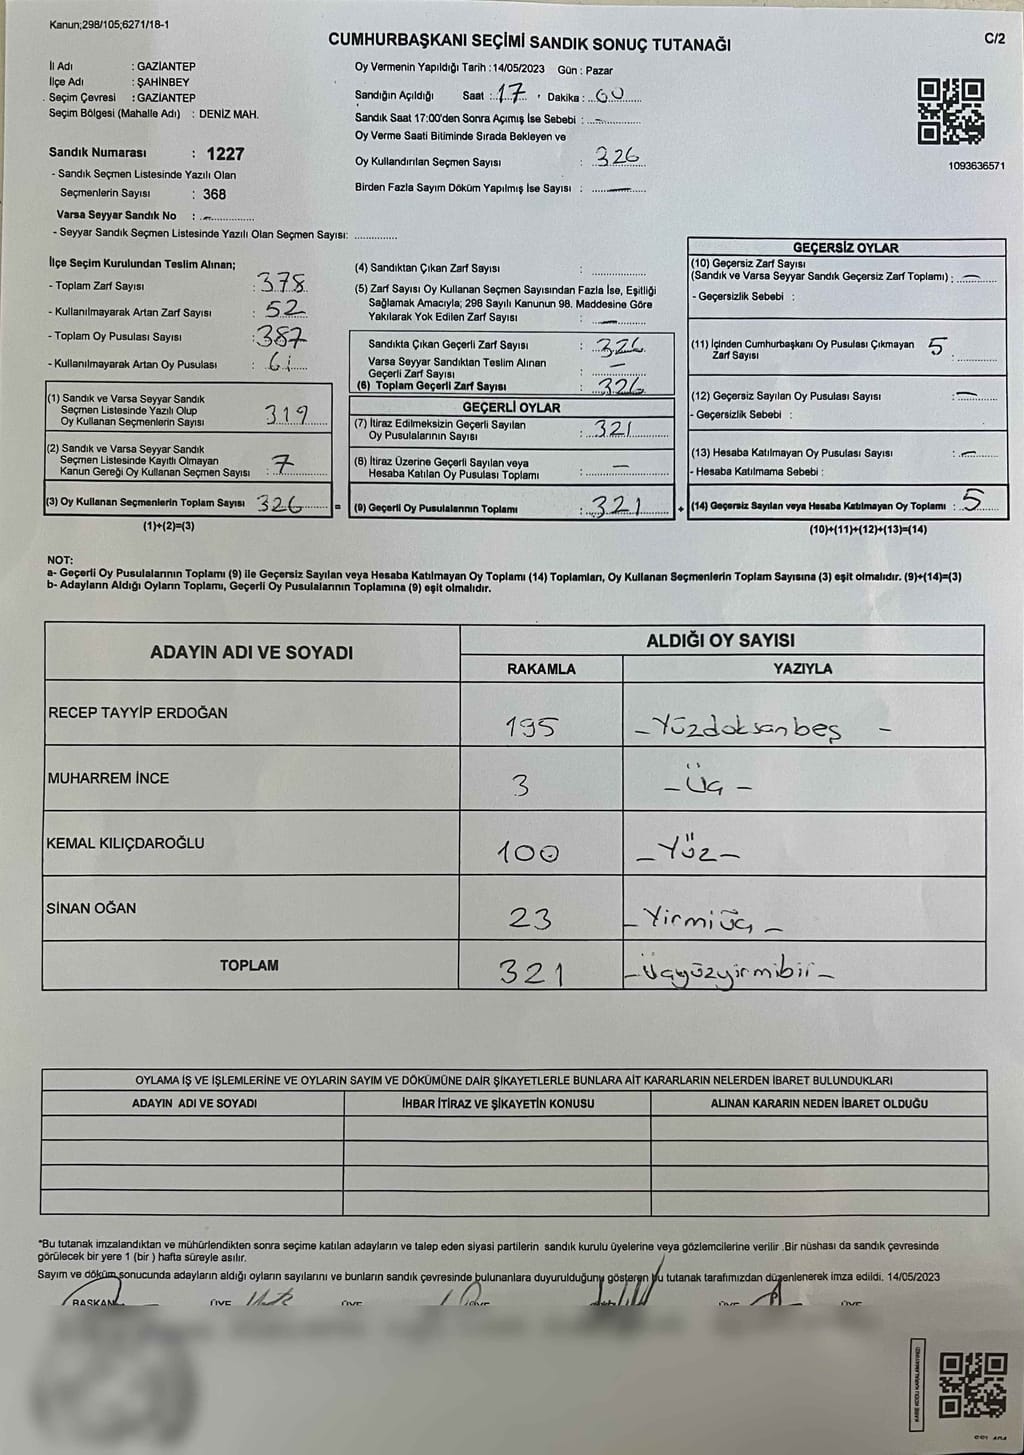 Kanun;298/105,6271/18-1
CUMHURBAŞKANI SEÇİMİ SANDIK SONUÇ TUTANAĞI
C/2
İl Adı : GAZİANTEP
İlçe Adı : ŞAHİNBEY
Seçim Çevresi : GAZİANTEP
Seçim Bölgesi (Mahalle Adı) : DENİZ MAH.
Sandık Numarası : 1227
- Sandık Seçmen Listesinde Yazılı Olan
Seçmenlerin Sayısı : 368
Varsa Seyyar Sandık No : -
- Seyyar Sandık Seçmen Listesinde Yazılı Olan Seçmen Sayısı:
Oy Vermenin Yapıldığı Tarih : 14/05/2023 Gün : Pazar
Sandığın Açıldığı Saat : 17 Dakika : 00
Sandık Saat 17:00'den Sonra Açımış İse Sebebi : -
Oy Verme Saati Bitiminde Sırada Bekleyen ve
Oy Kullandırılan Seçmen Sayısı : 326
Birden Fazla Sayım Döküm Yapılmış İse Sayısı : -
1093636571
İlçe Seçim Kurulundan Teslim Alınan;
- Toplam Zarf Sayısı : 378
- Kullanılmayarak Artan Zarf Sayısı : 52
- Toplam Oy Pusulası Sayısı : 387
- Kullanılmayarak Artan Oy Pusulası : 61
(1) Sandık ve Varsa Seyyar Sandık
Seçmen Listesinde Yazılı Olup
Oy Kullanan Seçmenlerin Sayısı 319
(2) Sandık ve Varsa Seyyar Sandık
Seçmen Listesinde Kayıtlı Olmayan
Kanun Gereği Oy Kullanan Seçmen Sayısı : 7
(3) Oy Kullanan Seçmenlerin Toplam Sayısı 326
(1)+(2)=(3)
(4) Sandıktan Çıkan Zarf Sayısı :
(5) Zarf Sayısı Oy Kullanan Seçmen Sayısından Fazla İse, Eşitliği
Sağlamak Amacıyla; 298 Sayılı Kanunun 98. Maddesine Göre
Yakılarak Yok Edilen Zarf Sayısı : -
Sandıkta Çıkan Geçerli Zarf Sayısı : 326
Varsa Seyyar Sandıktan Teslim Alınan
Geçerli Zarf Sayısı : -
(6) Toplam Geçerli Zarf Sayısı : 326
GEÇERLİ OYLAR
(7) İtiraz Edilmeksizin Geçerli Sayılan
Oy Pusulalarının Sayısı : 321
(8) İtiraz Üzerine Geçerli Sayılan veya
Hesaba Katılan Oy Pusulası Toplamı : -
= (9) Geçerli Oy Pusulalarının Toplamı : 321
GEÇERSİZ OYLAR
(10) Geçersiz Zarf Sayısı
(Sandık ve Varsa Seyyar Sandık Geçersiz Zarf Toplamı) : -
- Geçersizlik Sebebi :
(11) İçinden Cumhurbaşkanı Oy Pusulası Çıkmayan
Zarf Sayısı : 5
(12) Geçersiz Sayılan Oy Pusulası Sayısı : -
- Geçersizlik Sebebi :
(13) Hesaba Katılmayan Oy Pusulası Sayısı : -
- Hesaba Katılmama Sebebi :
+ (14) Geçersiz Sayılan veya Hesaba Katılmayan Oy Toplamı : 5
(10)+(11)+(12)+(13)=(14)
NOT:
a- Geçerli Oy Pusulalarının Toplamı (9) ile Geçersiz Sayılan veya Hesaba Katılmayan Oy Toplamı (14) Toplamları, Oy Kullanan Seçmenlerin Toplam Sayısına (3) eşit olmalıdır. (9)+(14)=(3)
b- Adayların Aldığı Oyların Toplamı, Geçerli Oy Pusulalarının Toplamına (9) eşit olmalıdır.
ADAYIN ADI VE SOYADI
ALDIĞI OY SAYISI
RAKAMLA YAZIYLA
RECEP TAYYİP ERDOĞAN 195 - Yüzdoksanbeş -
MUHARREM İNCE 3 - Üç -
KEMAL KILIÇDAROĞLU 100 - Yüz -
SİNAN OĞAN 23 - Yirmiüç -
TOPLAM 321 - Üçyüzyirmibir -
OYLAMA İŞ VE İŞLEMLERİNE VE OYLARIN SAYIM VE DÖKÜMÜNE DAİR ŞİKAYETLERLE BUNLARA AİT KARARLARIN NELERDEN İBARET BULUNDUKLARI
ADAYIN ADI VE SOYADI İHBAR İTİRAZ VE ŞİKAYETİN KONUSU ALINAN KARARIN NEDEN İBARET OLDUĞU
*Bu tutanak imzalandıktan ve mühürlendikten sonra seçime katılan adayların ve talep eden siyasi partilerin sandık kurulu üyelerine veya gözlemcilerine verilir .Bir nüshası da sandık çevresinde
görülecek bir yere 1 (bir ) hafta süreyle asılır.
Sayım ve döküm sonucunda adayların aldığı oyların sayılarını ve bunların sandık çevresinde bulunanlara duyurulduğunu gösteren bu tutanak tarafımızdan düzenlenerek imza edildi. 14/05/2023
BAŞKAN ÜYE ÜYE ÜYE ÜYE ÜYE
KARE KODU KARALAMAYINIZ!